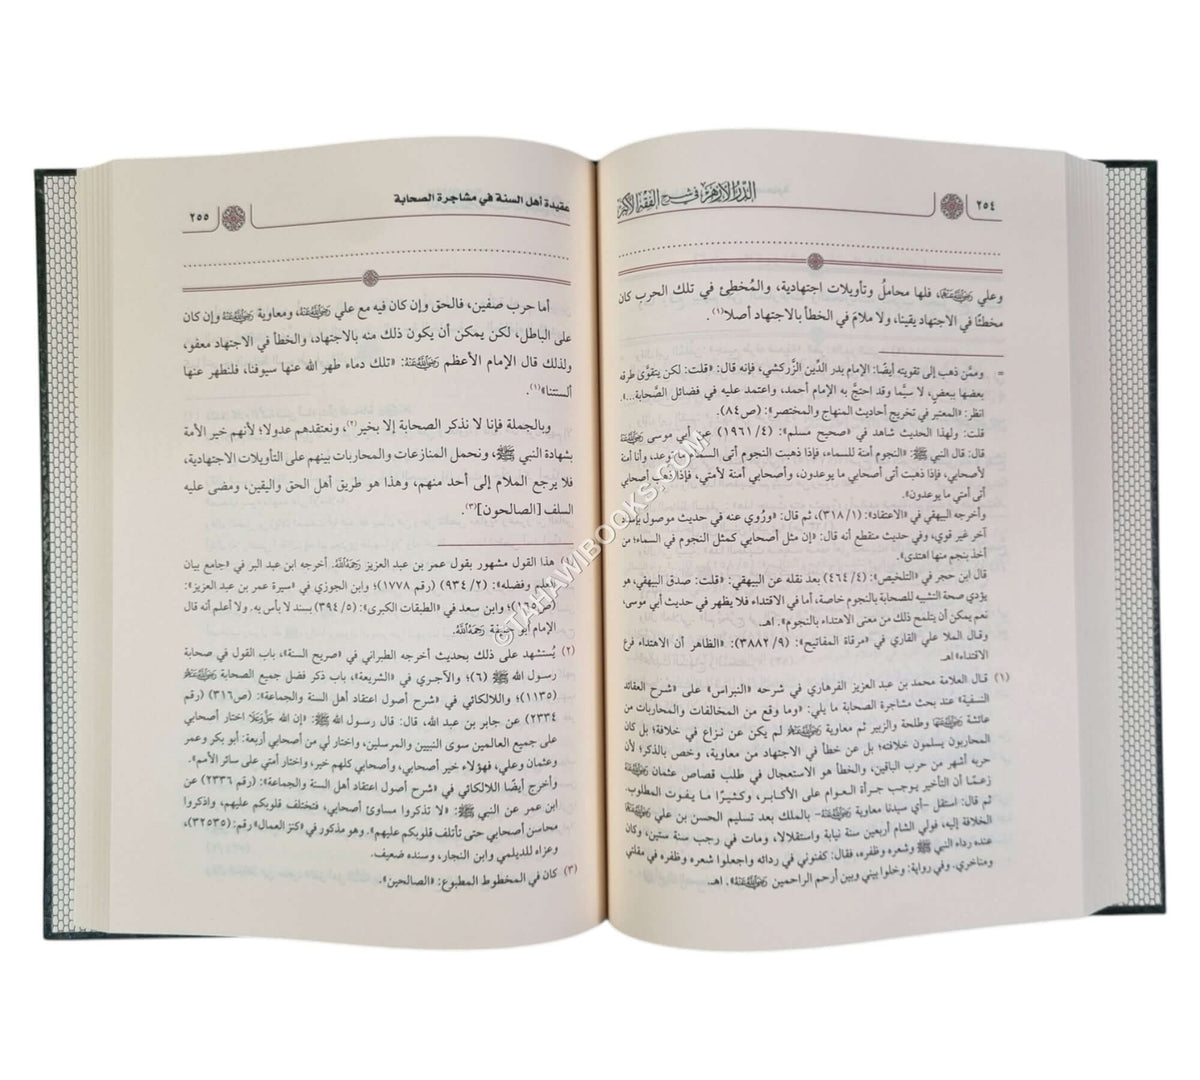 ٢٥٤
الدر الأزهر في شرح الفقه الأكبر
وعلي رَضِيَ اللَّهُ عَنْهُمَا، فلها محاملُ وتأويلات اجتهادية، والمُخطئ في تلك الحرب كان
مخطئًا في الاجتهاد يقينا، ولا ملامَ في الخطأ بالاجتهاد أصلا(١).
= وممَّن ذهب إلى تقويته أيضًا: الإمام بدر الدِّين الزَّركشي، فإنه قال: «قلت: لكن يتقوَّى طرقه
بعضها ببعض، لا سيَّما وقد احتجَّ به الإمام أحمد، واعتمد عليه في فضائل الصحابة...».
انظر: «المعتبر في تخريج أحاديث المنهاج والمختصر»: (ص٨٤).
قلت: ولهذا الحديث شاهد في «صحيح مسلم»: (٤/ ١٩٦١) عن أبي موسى رَضِيَ اللَّهُ عَنْهُ
قال: قال النبي ﷺ: «النجوم أمنة للسماء، فإذا ذهبت النجوم أتى السماء ما توعد، وأنا أمنة
لأصحابي، فإذا ذهبت أتى أصحابي ما يوعدون، وأصحابي أمنة لأمتي، فإذا ذهب أصحابي
أتى أمتي ما يوعدون».
وأخرجه البيهقي في «الاعتقاد»: (١/ ٣١٨)، ثم قال: «ورُوي عنه في حديث موصول بإسناد
آخر غير قوي، وفي حديث منقطع أنه قال: «إن مثل أصحابي كمثل النجوم في السماء؛ من
أخذ بنجم منها اهتدى».
قال ابن حجر في «التلخيص»: (٤/ ٤٦٤) بعد نقله عن البيهقي: «قلت: صدق البيهقي، هو
يؤدي صحة التشبيه للصحابة بالنجوم خاصة، أما في الاقتداء فلا يظهر في حديث أبي موسى،
نعم يمكن أن يتلمح ذلك من معنى الاهتداء بالنجوم». اهـ.
وقال الملا علي القاري في «مرقاة المفاتيح»: (٩/ ٣٨٨٢): «الظاهر أن الاهتداء فرع
الاقتداء» اهـ.
(١) قال العلامة محمد بن عبد العزيز الفرهاري في شرحه «النبراس» على «شرح العقائد
النسفية» عند بحث مشاجرة الصحابة ما يلي: «وما وقع من المخالفات والمحاربات من
عائشة رَضِيَ اللَّهُ عَنْهَا وطلحة والزبير ثم معاوية رَضِيَ اللَّهُ عَنْهُمْ لم يكن عن نزاع في خلافة؛ بل كان
المحاربون يسلمون خلافته؛ بل عن خطأ في الاجتهاد من معاوية، وخص بالذكر؛ لأن
حربه أشهر من حرب الباقين، والخطأ هو الاستعجال في طلب قصاص عثمان رَضِيَ اللَّهُ عَنْهُ
زعمًا أن التأخير يوجب جرأة العوام على الأكابر، وكثيرًا ما يفوت المطلوب.
ثم قال: استقل -أي سيدنا معاوية رَضِيَ اللَّهُ عَنْهُ- بالملك بعد تسليم الحسن بن علي رَضِيَ اللَّهُ عَنْهُمَا
الخلافة إليه، فولي الشام أربعين سنة نيابة واستقلالا، ومات في رجب سنة ستين، وكان
عنده رداء النبي ﷺ وشعره وظفره، فقال: كفنوني في ردائه واجعلوا شعره وظفره في مقلتي
ومناخري. وفي رواية: وخلوا بيني وبين أرحم الراحمين رَضِيَ اللَّهُ عَنْهُ». اهـ.
عقيدة أهل السنة في مشاجرة الصحابة
٢٥٥
أما حرب صفين، فالحق وإن كان فيه مع علي رَضِيَ اللَّهُ عَنْهُ، ومعاوية رَضِيَ اللَّهُ عَنْهُ وإن كان
على الباطل، لكن يمكن أن يكون ذلك منه بالاجتهاد، والخطأ في الاجتهاد معفو،
ولذلك قال الإمام الأعظم رَضِيَ اللَّهُ عَنْهُ: «تلك دماء طهر الله عنها سيوفنا، فلنطهر عنها
ألسنتنا»(١).
وبالجملة فإنا لا نذكر الصحابة إلا بخير(٢)، ونعتقدهم عدولا؛ لأنهم خير الأمة
بشهادة النبي ﷺ، ونحمل المنازعات والمحاربات بينهم على التأويلات الاجتهادية،
فلا يرجع الملام إلى أحد منهم، وهذا هو طريق أهل الحق واليقين، ومضى عليه
السلف [الصالحون](٣).
(١) هذا القول مشهور بقول عمر بن عبد العزيز رَحِمَهُ اللَّهُ. أخرجه ابن عبد البر في «جامع بيان
العلم وفضله»: (٢/ ٩٣٤) (رقم ١٧٧٨)؛ وابن الجوزي في «سيرة عمر بن عبد العزيز»:
؛ وابن سعد في «الطبقات الكبرى»: (٥/ ٣٩٤) بسند لا بأس به. ولا أعلم أنه قاله
الإمام أبو حنيفة رَحِمَهُ اللَّهُ.
(٢) يُستشهد على ذلك بحديث أخرجه الطبراني في «صريح السنة»، باب القول في صحابة
رسول الله ﷺ (٦)؛ والآجري في «الشريعة»، باب ذكر فضل جميع الصحابة رَضِيَ اللَّهُ عَنْهُمْ
(١١٣٥)؛ واللالكائي في «شرح أصول اعتقاد أهل السنة والجماعة»: (ص٣١٦) (رقم
٢٣٣٤) عن جابر بن عبد الله، قال: قال رسول الله ﷺ: «إن الله جَلَّ وَعَلَا اختار أصحابي
على جميع العالمين سوى النبيين والمرسلين، واختار لي من أصحابي أربعة: أبو بكر وعمر
وعثمان وعلي، فهؤلاء خير أصحابي، وأصحابي كلهم خير، واختار أمتي على سائر الأمم».
وأخرج أيضًا اللالكائي في «شرح أصول اعتقاد أهل السنة والجماعة»: (رقم ٢٣٣٦) عن
ابن عمر عن النبي ﷺ: «لا تذكروا مساوئ أصحابي، فتختلف قلوبكم عليهم، واذكروا
محاسن أصحابي حتى تأتلف قلوبكم عليهم». وهو مذكور في «كنز العمال» رقم: (٣٢٥٣٥)،
وعزاه للديلمي وابن النجار، وسنده ضعيف.
(٣) كان في المخطوط المطبوع: «الصالحين».
©TAHAWIBOOKS.COM